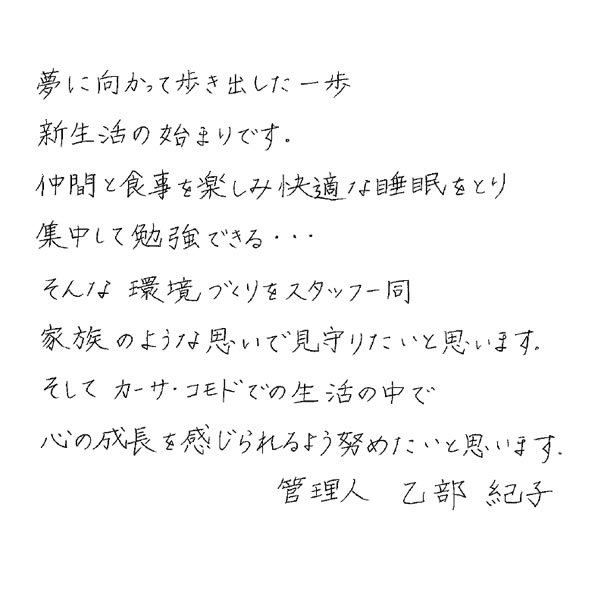 夢に向かって歩き出した一歩
新生活の始まりです.
仲間と食事を楽しみ快適な睡眠をとり
集中して勉強できる・・・
そんな 環境づくりをスタッフ一同
家族のような思いで見守りたいと思います。
そして カーサ・コモドでの生活の中で
心の成長を感じられるよう努めたいと思います.
管理人 乙部 紀子